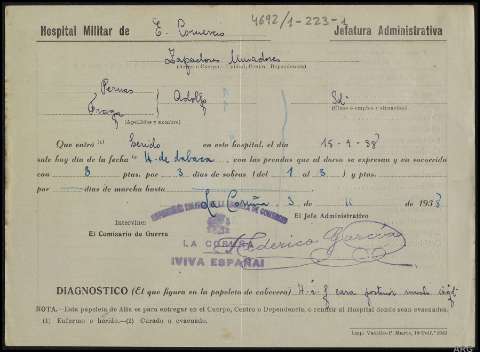 4692/1-223-1
Hospital Militar de E. Comercio Jefatura Administrativa
Zapadores Minadores
Pernas
Adolfo Sdº
Fraga
(Apellidos y nombre) (Clase o empleo y situación)
Que entró (1) herido en este hospital, el día 15-9-38
sale hoy día de la fecha (2) con las prendas que al dorso se expresan y va socorrido
con 3 ptas. por 3 días de sobras (del 1 al 3) y ptas.
por días de marcha hasta
La Coruña 3 de 11 de 1938
Intervine: El Jefe Administrativo
El Comisario de Guerra
LA CORUÑA
Federico García
¡VIVA ESPAÑA!
DIAGNOSTICO (El que figura en la papeleta de cabecera) H. i. f. cara
NOTA.—Esta papeleta de Alta es para entregar en el Cuerpo, Centro o Dependencia, o remitir al Hospital donde sean evacuados.
(1) Enfermo o herido.—(2) Curado o evacuado.
ARG